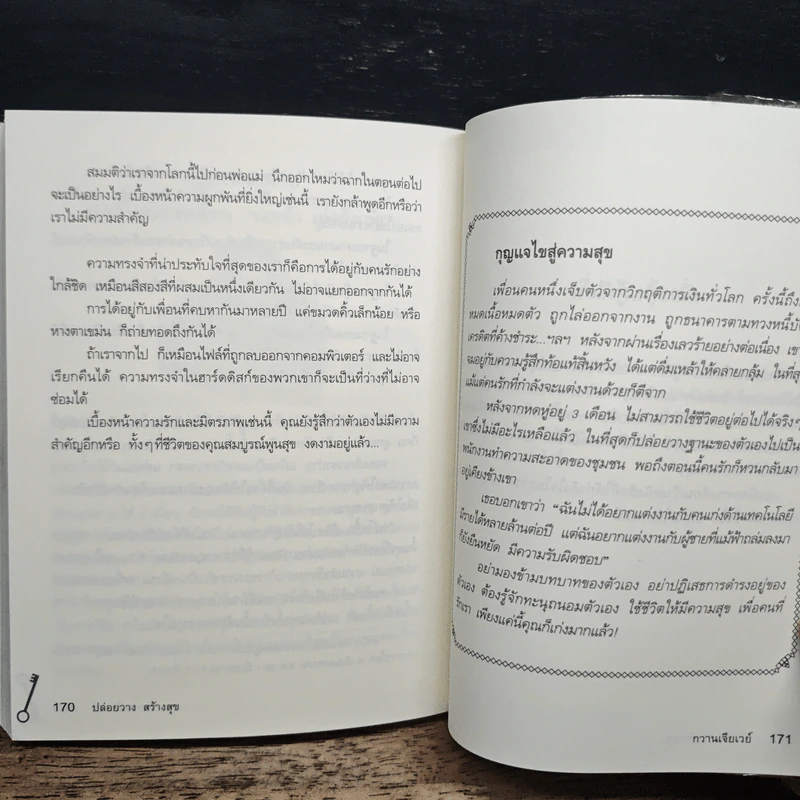 สมมติว่าเราจากโลกนี้ไปก่อนพ่อแม่ นึกออกไหมว่าฉากในตอนต่อไป
จะเป็นอย่างไร เบื้องหน้าความผูกพันที่ยิ่งใหญ่เช่นนี้ เรายังกล้าพูดอีกหรือว่า
เราไม่มีความสำคัญ
ความทรงจำที่น่าประทับใจที่สุดของเราก็คือการได้อยู่กับคนรักอย่าง
ใกล้ชิด เหมือนสีสองสีที่ผสมเป็นหนึ่งเดียวกัน ไม่อาจแยกออกจากกันได้
การได้อยู่กับเพื่อนที่คบหากันมาหลายปี แค่ขมวดคิ้วเล็กน้อย หรือ
หางตาเขม่น ก็ถ่ายทอดถึงกันได้
ถ้าเราจากไป ก็เหมือนไฟล์ที่ถูกลบออกจากคอมพิวเตอร์ และไม่อาจ
เรียกคืนได้ ความทรงจำในฮาร์ดดิสก์ของพวกเขาก็จะเป็นที่ว่างที่ไม่อาจ
ซ่อมได้
เบื้องหน้าความรักและมิตรภาพเช่นนี้ คุณยังรู้สึกว่าตัวเองไม่มีความ
สำคัญอีกหรือ ทั้งๆ ที่ชีวิตของคุณสมบูรณ์พูนสุข งดงามอยู่แล้ว...
170 ปล่อยวาง สร้างสุข
กุญแจไขสู่ความสุข
เพื่อนคนหนึ่งเจ็บตัวจากวิกฤติการเงินทั่วโลก ครั้งนี้ถึง
หมดเนื้อหมดตัว ถูกไล่ออกจากงาน ถูกธนาคารตามทวงหนี้บัต
เครดิตที่ค้างชำระ...ฯลฯ หลังจากผ่านเรื่องเลวร้ายอย่างต่อเนื่อง เขา
จมอยู่กับความรู้สึกท้อแท้สิ้นหวัง ได้แต่ดื่มเหล้าให้คลายกลุ้ม ในที่สุด
แม้แต่คนรักที่กำลังจะแต่งงานด้วยก็ตีจาก
หลังจากหดหู่อยู่ 3 เดือน ไม่สามารถใช้ชีวิตอยู่ต่อไปได้จริงๆ
เขาซึ่งไม่มีอะไรเหลือแล้ว ในที่สุดก็ปล่อยวางฐานะของตัวเองไปเป็น
พนักงานทำความสะอาดของชุมชน พอถึงตอนนี้คนรักก็หวนกลับมา
อยู่เคียงข้างเขา
เธอบอกเขาว่า “ฉันไม่ได้อยากแต่งงานกับคนเก่งด้านเทคโนโลยี
มีรายได้หลายล้านต่อปี แต่ฉันอยากแต่งงานกับผู้ชายที่แม้ฟ้าถล่มลงมา
ก็ยังยืนหยัด มีความรับผิดชอบ”
อย่ามองข้ามบทบาทของตัวเอง อย่าปฏิเสธการดำรงอยู่ของ
ตัวเอง ต้องรู้จักทะนุถนอมตัวเอง ใช้ชีวิตให้มีความสุข เพื่อคนที่
รักเรา เพียงแค่นี้คุณก็เก่งมากแล้ว!
กวานเจียเวย์ 171